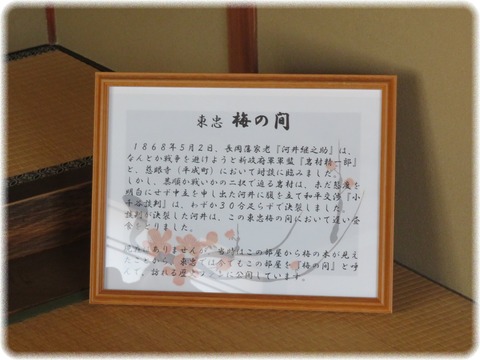 東忠 梅の間
1868年5月2日、長岡藩家老『河井継之助』は、
なんとか戦争を避けようと新政府軍軍監『岩村精一郎』
と、慈眼寺（平成町）において対談に臨みました。
しかし、恭順か戦いかの二択で迫る岩村は、未だ態度を
明白にせず中立を申し出た河井に腹を立て和平交渉『小
千谷談判』は、わずか30分足らずで決裂しました。
談判が決裂した河井は、この東忠梅の間において遅い昼
食をとりました。
ありませんが、当時はこの部屋から梅の木が見え
たことから、東忠では今でもこの部屋を『梅の間』と呼
んで、訪れる歴史ファンに公開しています。